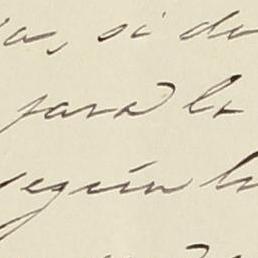 as, si da
para la
según la